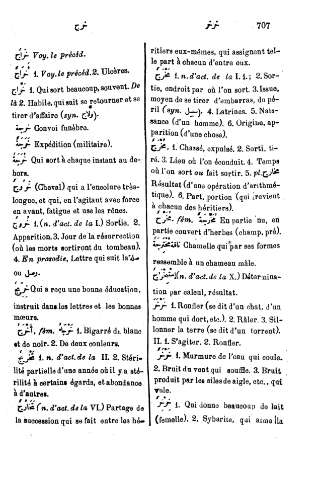 خرج
خرخر
707
خُرَاج Voy. le précéd.
خُرَّاج 1. Voy. le précéd. 2. Ulcères.
خَرَّاج 1. Qui sort beaucoup, souvent. De
là 2. Habile, qui sait se retourner et se
tirer d'affaire (syn. وَلَّاج).
Convoi funèbre.
Expédition (militaire).
Qui sort à chaque instant au de-
hors.
خَرُوج (Cheval) qui a l'encolure très-
longue, et qui, en l'agitant avec force
en avant, fatigue et use les rênes.
خُرُوج 1. (n. d'act. de la I.) Sortie. 2.
Apparition. 3. Jour de la résurrection
(où les morts sortiront du tombeau).
4. En prosodie, Lettre qui suit la هاء
وصل.
Qui a reçu une bonne éducation,
instruit dans les lettres et les bonnes
mœurs.
أَخْرَج fém. خَرْجَاء 1. Bigarré de blanc
et de noir. 2. De deux couleurs.
تَخْرِيج 1. n. d'act. de la II. 2. Stéri-
lité partielle d'une année où il y a sté-
rilité à certains égards, et abondance
à d'autres.
تَخَارُج (n. d'act. de la VI.) Partage de
la succession qui se fait entre les hé-
ritiers eux-mêmes, qui assignent tel-
le part à chacun d'entre eux.
مَخْرَج 1. n. d'act. de la I. 1; 2. Sor-
tie, endroit par où l'on sort. 3. Issue,
moyen de se tirer d'embarras, du pé-
ril (syn. سبيل). 4. Latrines. 5. Nais-
sance (d'un homme). 6. Origine, ap-
parition (d'une chose).
مُخْرَج 1. Chassé, expulsé. 2. Sorti, ti-
ré. 3. Lieu où l'on éconduit. 4. Temps
où l'on sort ou fait sortir. 5. pl. مخارج
Résultat (d'une opération d'arithmé-
tique). 6. Part, portion (qui revient
à chacun des héritiers).
مُخَرَّج, fém. مُخَرَّجَة En partie nu, en
partie couvert d'herbes (champ, pré).
Chamelle qui par ses formes
ressemble à un chameau mâle.
اِسْتِخْرَاج (n. d'act. de la X.) Détermina-
tion par calcul, résultat.
خَرْخَرَ 1. Ronfler (se dit d'un chat, d'un
homme qui dort, etc.). 2. Râler. 3. Sil-
lonner la terre (se dit d'un torrent).
II. 1. S'agiter. 2. Ronfler.
1. Murmure de l'eau qui coule.
2. Bruit du vent qui souffle. 3. Bruit
produit par les ailes de aigle, etc., qui
vole.
1. Qui donne beaucoup de lait
(femelle). 2. Sybarite, qui aime la